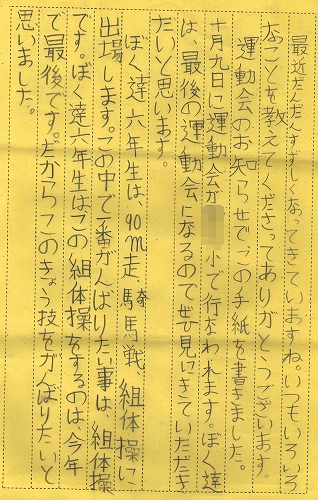 最近だんだんすずしくなってきていますね。いつもいろいろ
なことを教えてくださってありがとうございます。
運動会のお知らせでこの手紙を書きました。
十月九日に運動会が 小で行なわれます。ぼく達
は、最後の運動会になるのでぜひ見にきていただき
たいと思います。
ぼく達六年生は、90m走 騎馬戦 組体操に
出場します。この中で一番がんばりたい事は、組体操
です。ぼく達六年生はこの組体操をするのは、今年
で最後です。だからこのきょう技をがんばりたいと
思いました。